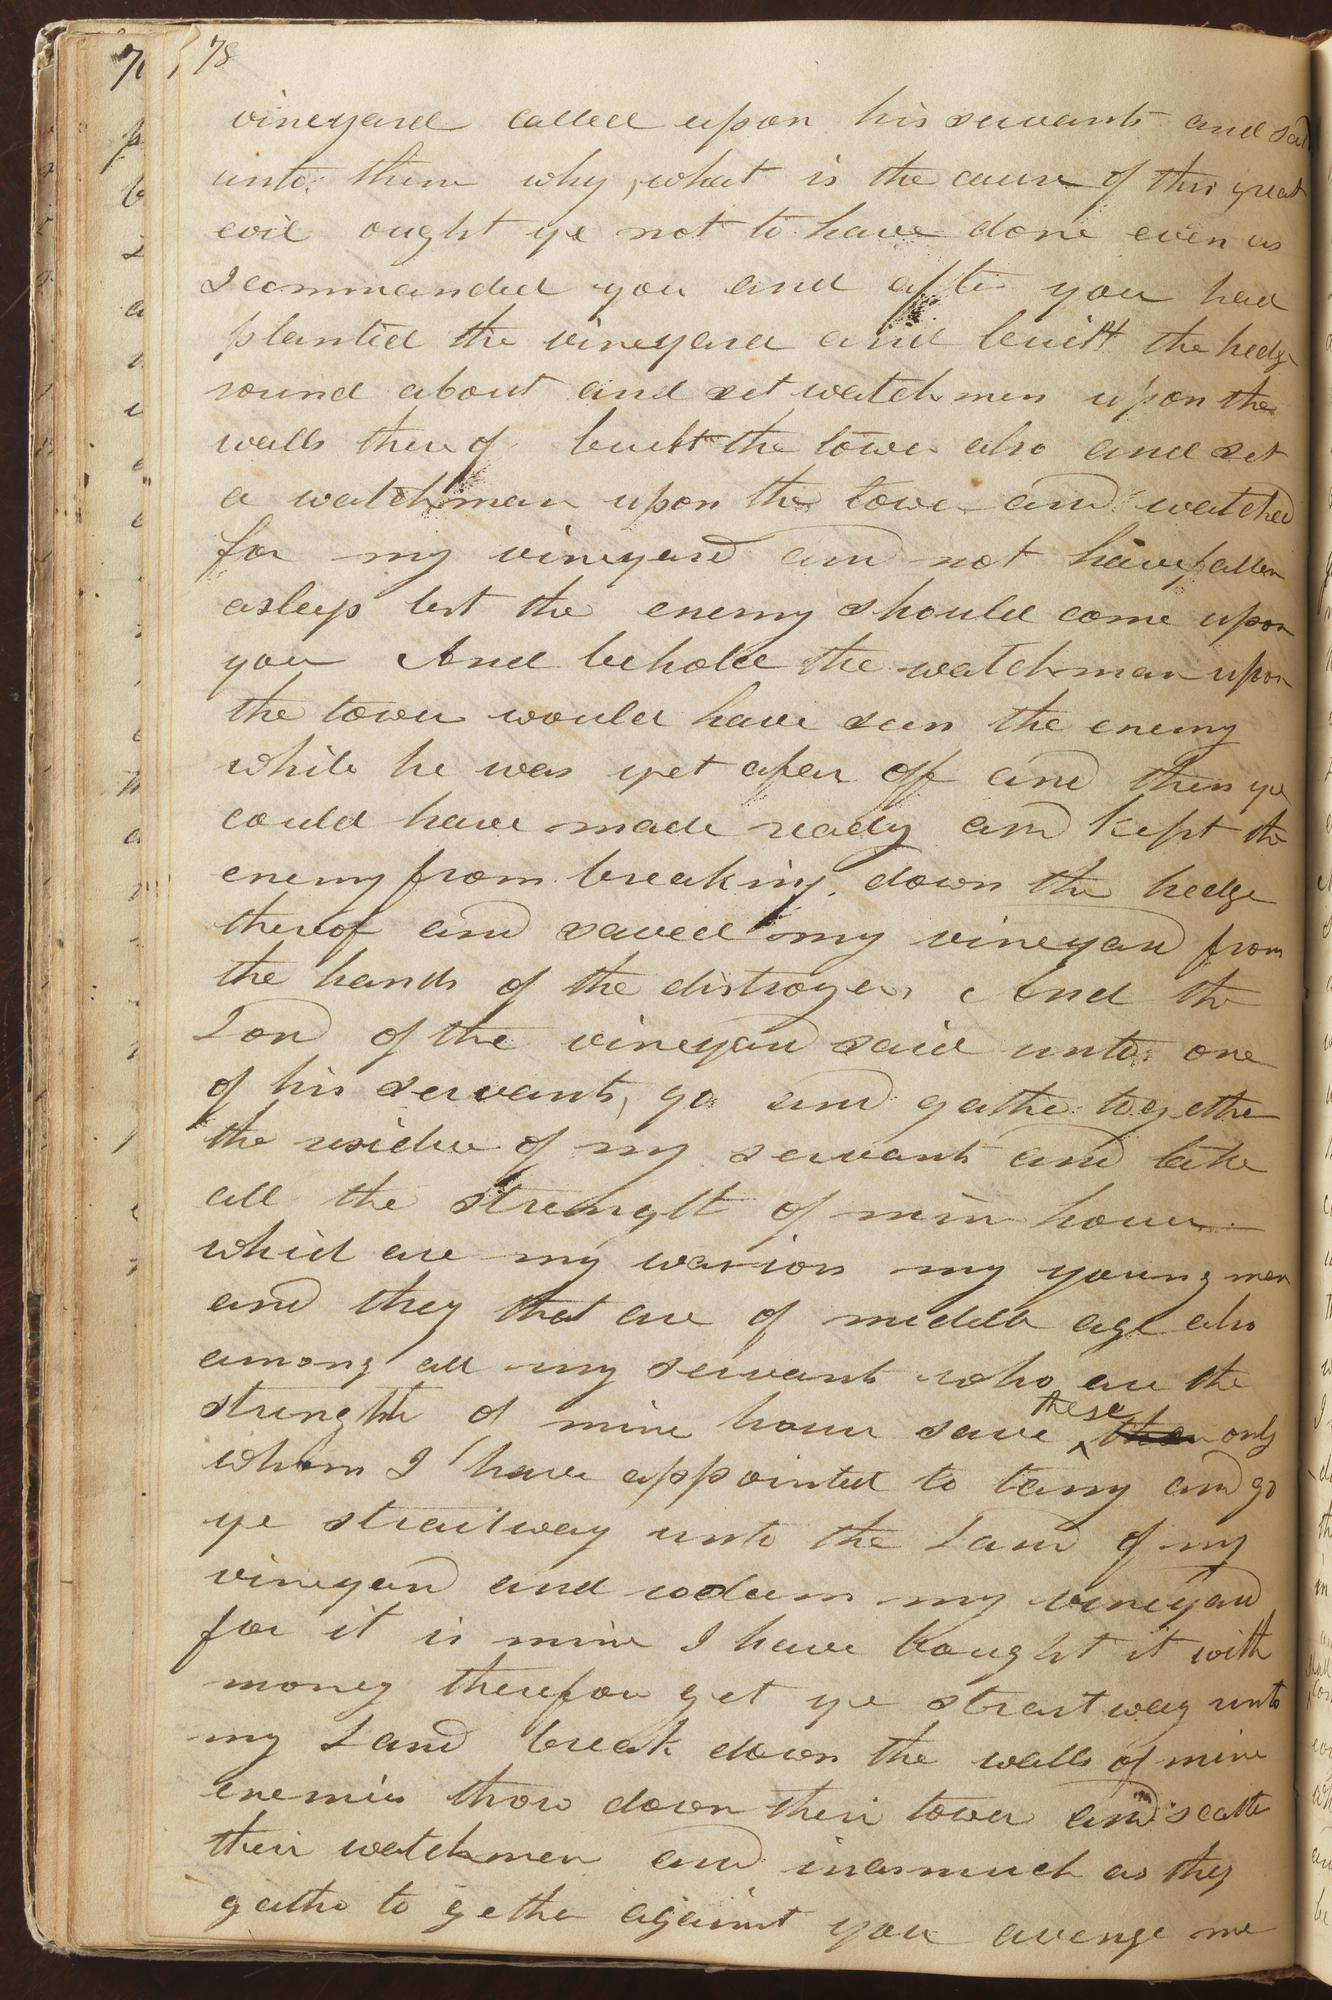 78
vineyard called upon his servants and said
unto them why, what is the cause of this great
evil ought ye not to have done even as
I commanded you and after you had
planted the vineyard and built the hedge
round about and set watchmen upon the
walls thereof built the tower also and set
a watchman upon the tower and watched
for my vineyard and not have fallen
asleep lest the enemy should come upon
you And behold the watchman upon
the tower would have seen the enemy
while he was yet afar off and then ye
could have made ready and kept the
enemy from breaking down the hedge
thereof and saved my vineyard from
the hands of the distroyer, And the
Lord of the vineyard said unto one
of his servants, go and gather together
the residue of my servants and take
all the strength of mine house
which are my wariors my young men
and they that are of middle age also
among all my servants who are the
strength of mine house save ^these them only
whom I have appointed to tarry and go
ye straitway unto the Land of my
vineyard and redeem my vineyard
for it is mine I have bought it with
money therefore get ye straitway unto
my Land break down the walls of mine
enemies throw down their tower and scatter
their watchmen and inasmuch as they
gather to gether against you avenge me